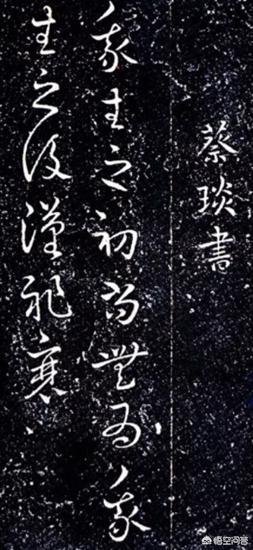 蔡琰書
我生之初尚無為我
生之後漢祚衰
悟空问答